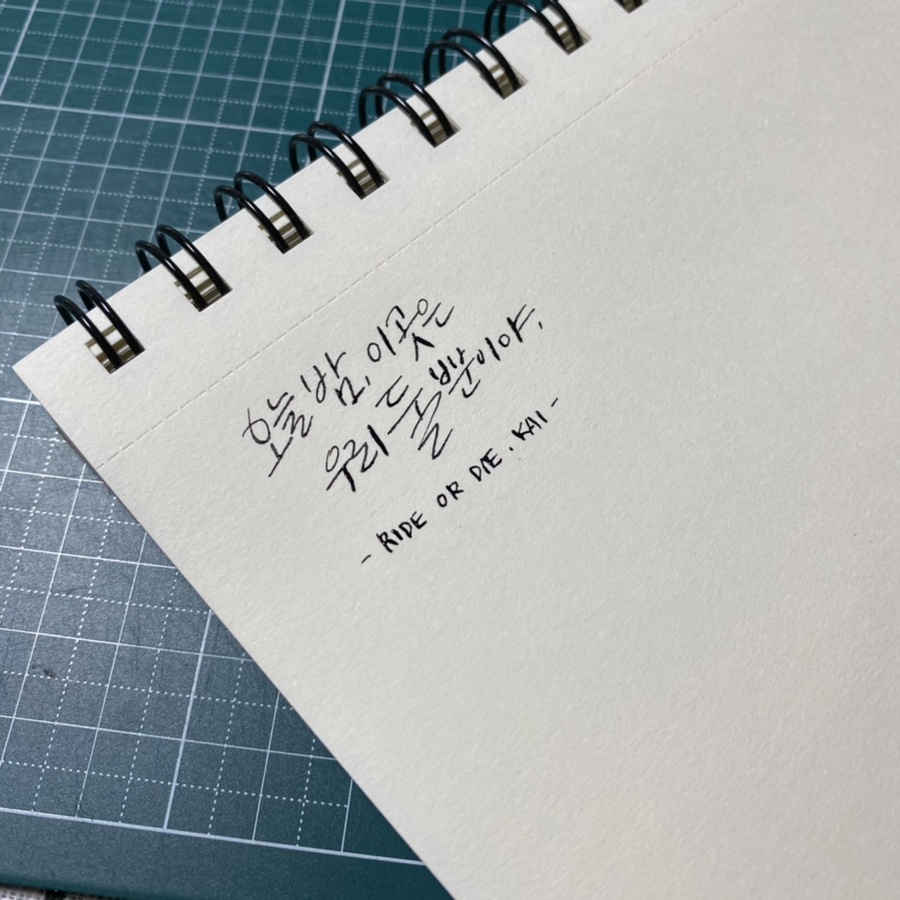 오늘 밤, 이곳은
우리 둘 뿐이야.
- RIDE OR DIE, KAI -